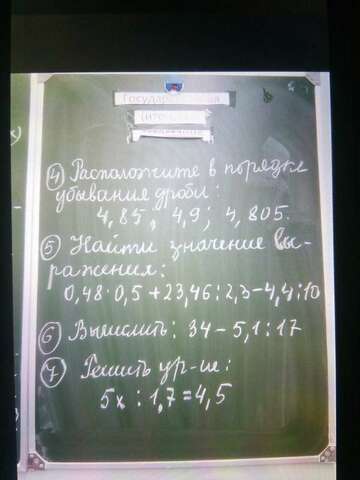 ④ Расположите в порядке
убывания дроби:
4,85; 4,9; 4,805.
⑤ Найти значение вы-
ражения:
0,48·0,5+23,46:2,3-4,4:10
⑥ Вычислить: 34-5,1:17
⑦ Решить ур-ие:
5х:1,7=4,5